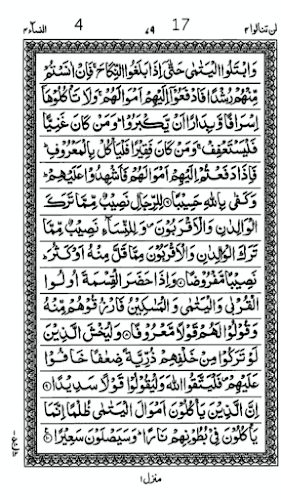 لن تنالوا ٤ ٧٩ النساء ٤
4 17
وَابْتَلُوا الْيَتٰمٰى حَتّٰٓى اِذَا بَلَغُوا النِّكَاحَ ۚ فَاِنْ اٰنَسْتُمْ
مِّنْهُمْ رُشْدًا فَادْفَعُوْٓا اِلَيْهِمْ اَمْوَالَهُمْ ۚ وَلَا تَاْكُلُوْهَآ
اِسْرَافًا وَّبِدَارًا اَنْ يَّكْبَرُوْا ؕ وَمَنْ كَانَ غَنِيًّا
فَلْيَسْتَعْفِفْ ۚ وَمَنْ كَانَ فَقِيْرًا فَلْيَاْكُلْ بِالْمَعْرُوْفِ ؕ
فَاِذَا دَفَعْتُمْ اِلَيْهِمْ اَمْوَالَهُمْ فَاَشْهِدُوْا عَلَيْهِمْ ؕ
وَكَفٰى بِاللّٰهِ حَسِيْبًا ۝ لِلرِّجَالِ نَصِيْبٌ مِّمَّا تَرَكَ
الْوَالِدٰنِ وَالْاَقْرَبُوْنَ ۪ وَلِلنِّسَآءِ نَصِيْبٌ مِّمَّا
تَرَكَ الْوَالِدٰنِ وَالْاَقْرَبُوْنَ مِمَّا قَلَّ مِنْهُ اَوْ كَثُرَ ؕ
نَصِيْبًا مَّفْرُوْضًا ۝ وَاِذَا حَضَرَ الْقِسْمَةَ اُولُوا
الْقُرْبٰى وَالْيَتٰمٰى وَالْمَسٰكِيْنُ فَارْزُقُوْهُمْ مِّنْهُ
وَقُوْلُوْا لَهُمْ قَوْلًا مَّعْرُوْفًا ۝ وَلْيَخْشَ الَّذِيْنَ
لَوْ تَرَكُوْا مِنْ خَلْفِهِمْ ذُرِّيَّةً ضِعٰفًا خَافُوْا
عَلَيْهِمْ ۪ فَلْيَتَّقُوا اللّٰهَ وَلْيَقُوْلُوْا قَوْلًا سَدِيْدًا ۝
اِنَّ الَّذِيْنَ يَاْكُلُوْنَ اَمْوَالَ الْيَتٰمٰى ظُلْمًا اِنَّمَا
يَاْكُلُوْنَ فِيْ بُطُوْنِهِمْ نَارًا ؕ وَسَيَصْلَوْنَ سَعِيْرًا ۝
منزل ١